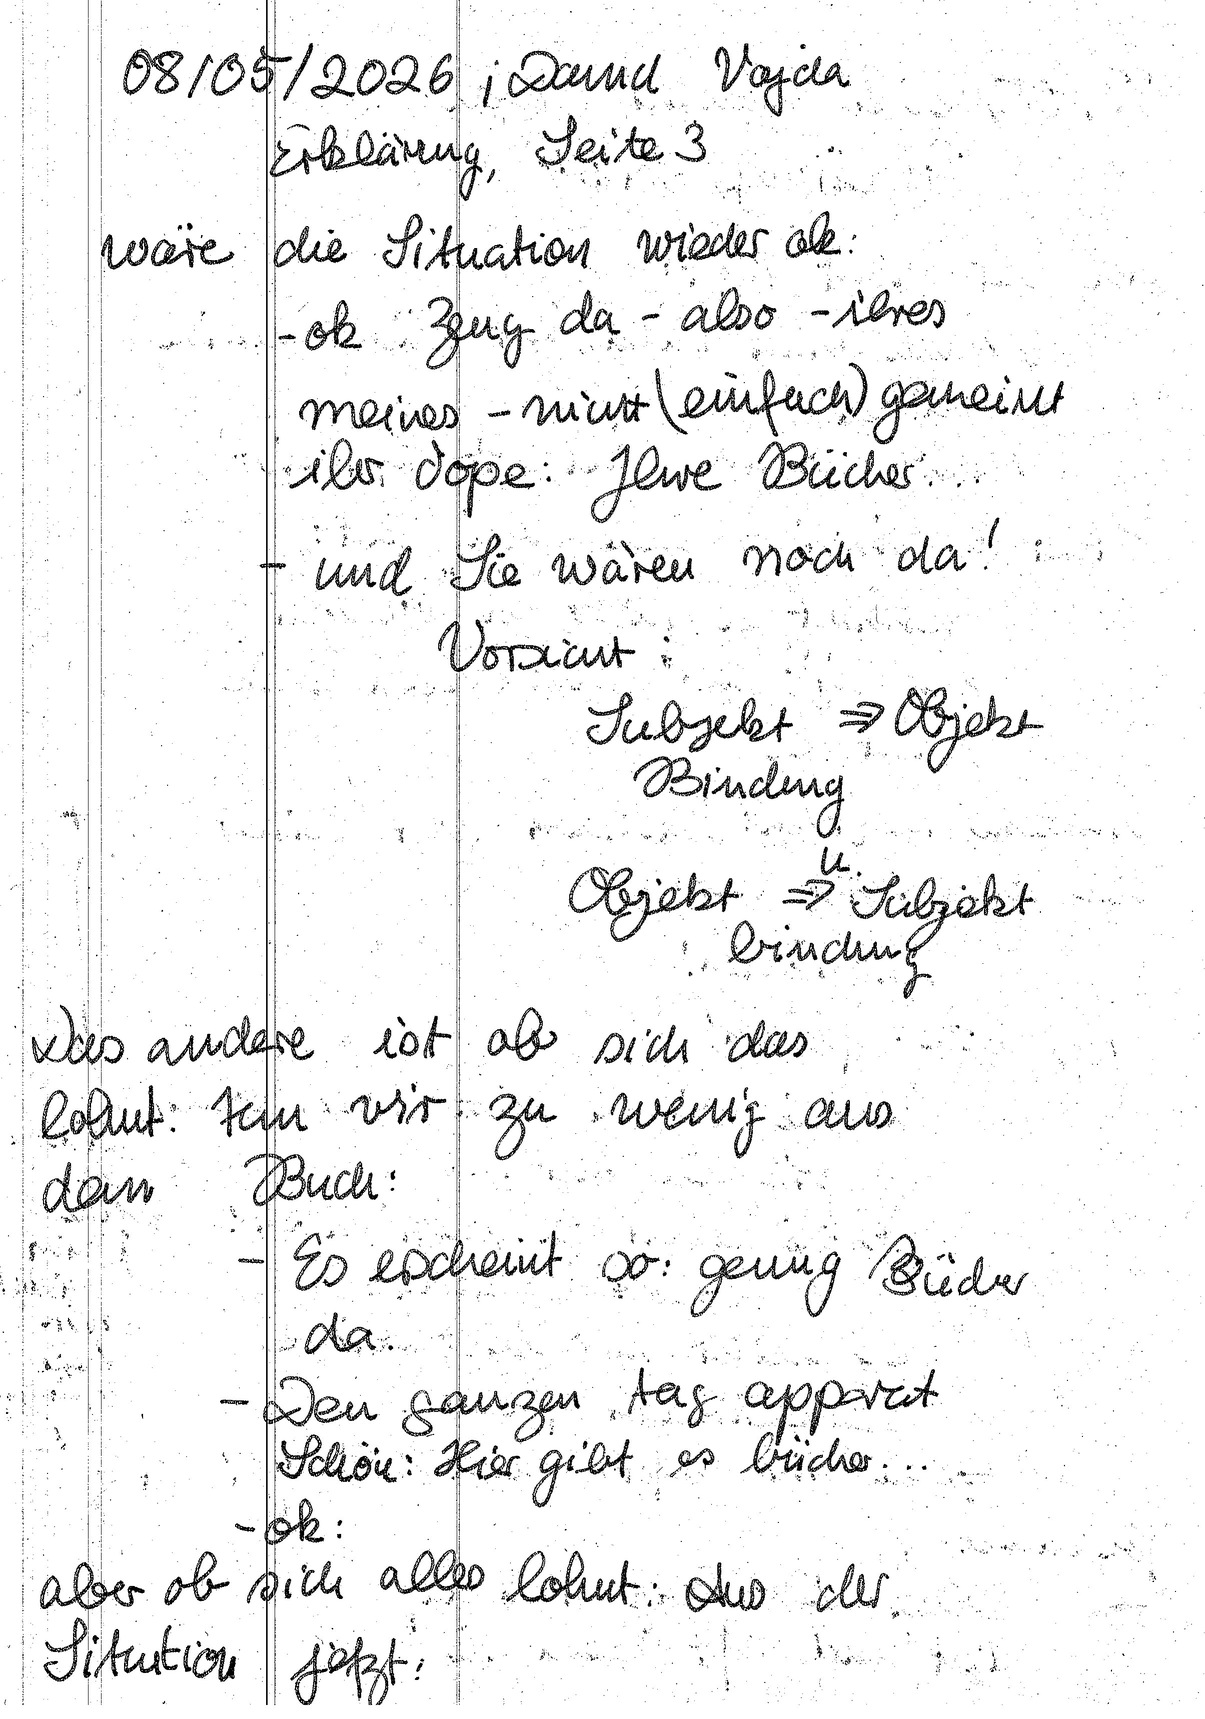 08/05/2026 ; David Vajda
Erklärung, Seite 3
wäre die Situation wieder ok:
- ok Zeug da - also - ihres
meines - nicht (einfach) gemeint
ihr dope: Ihre Bücher...
- und Sie wären noch da!
Vorsicht:
Subjekt => Objekt
Bindung
u.
Objekt => Subjekt
bindung
Das andere ist ob sich das
lohnt: tun wir zu wenig aus
dem Buch:
- Es erscheint so: genug Bücher
da.
- Den ganzen tag apparat
Schön: Hier gibt es bücher...
- ok:
aber ob sich alles lohnt: Aus der
Sitution jetzt: